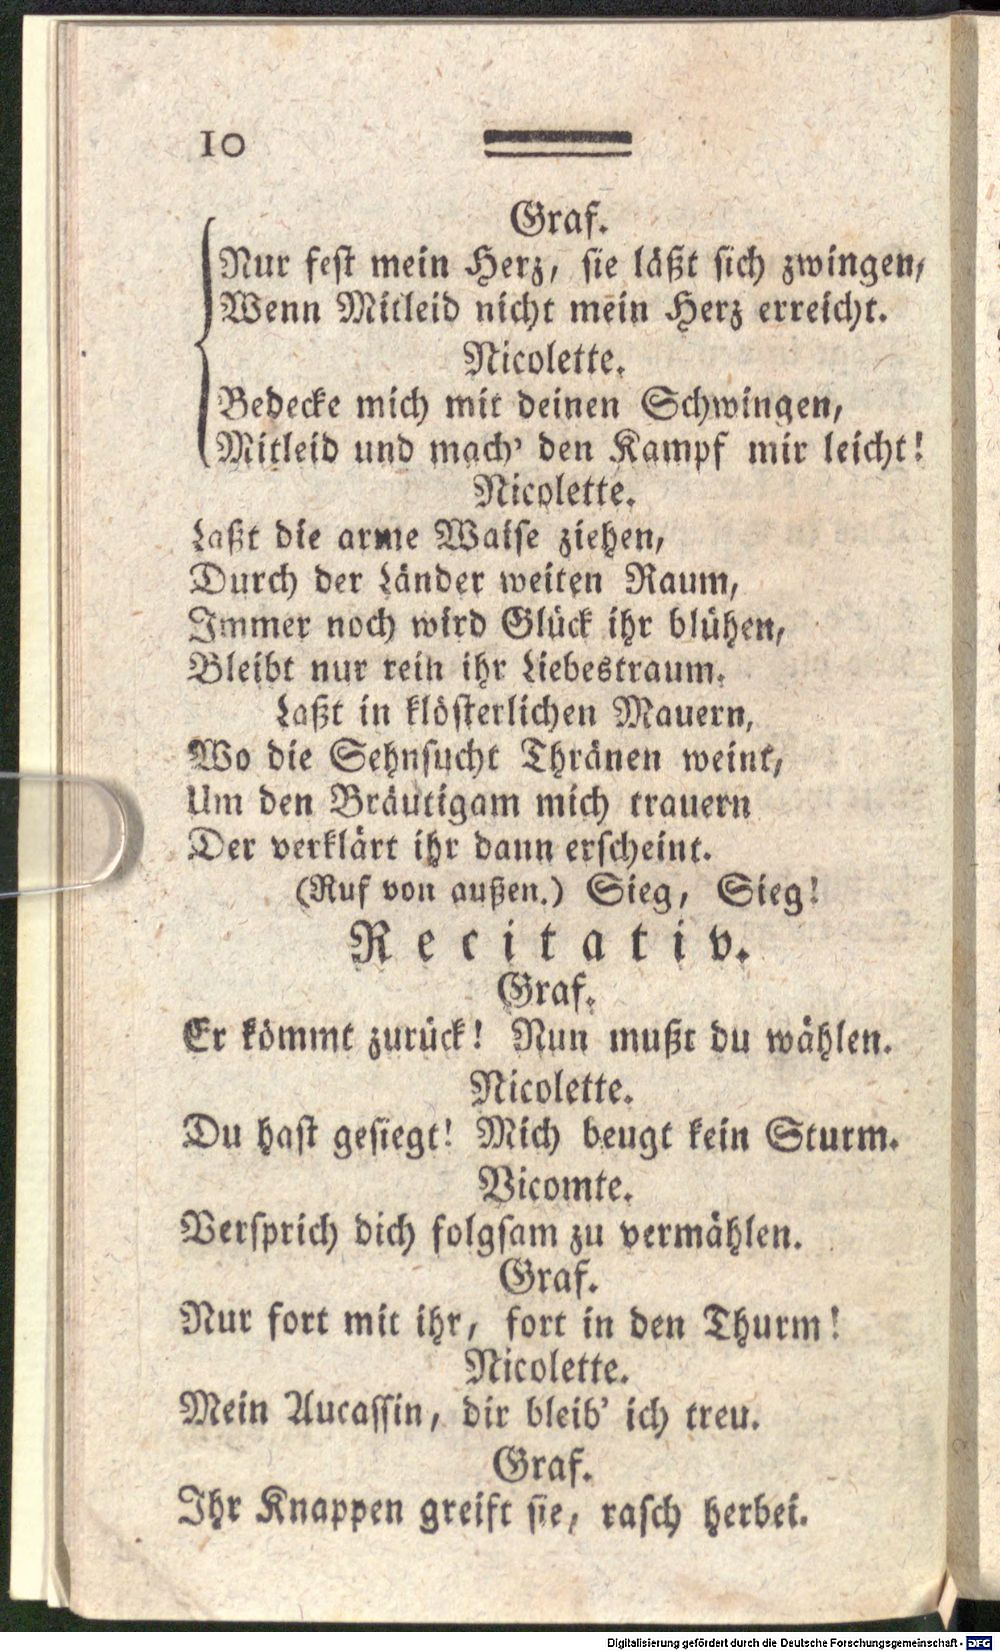 10
Graf.
Nur fest mein Herz, sie läßt sich zwingen,
Wenn Mitleid nicht mein Herz erreicht.
Nicolette.
Bedecke mich mit deinen Schwingen,
Mitleid und mach' den Kampf mir leicht!
Nicolette.
Laßt die arme Waise ziehen,
Durch der Länder weiten Raum,
Immer noch wird Glück ihr blühen,
Bleibt nur rein ihr Liebestraum.
Laßt in klösterlichen Mauern,
Wo die Sehnsucht Thränen weint,
Um den Bräutigam mich trauern
Der verklärt ihr dann erscheint.
(Ruf von außen.) Sieg, Sieg!
Recitativ.
Graf.
Er kömmt zurück! Nun mußt du wählen.
Nicolette.
Du hast gesiegt! Mich beugt kein Sturm.
Vicomte.
Versprich dich folgsam zu vermählen.
Graf.
Nur fort mit ihr, fort in den Thurm!
Nicolette.
Mein Aucassin, dir bleib' ich treu.
Graf.
Ihr Knappen greift sie, rasch herbei.
Digitalisierung gefördert durch die Deutsche Forschungsgemeinschaft - DFG